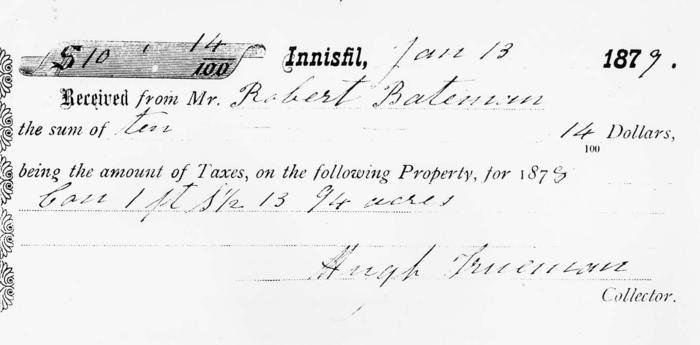 $10 14/100 Innisfil, Jan 13 1879.
Received from Mr. Robert Bateman
the sum of ten 14/100 Dollars,
being the amount of Taxes, on the following Property, for 1878
Con 1 pt S½ 13 94 acres
Hugh Trueman
Collector.